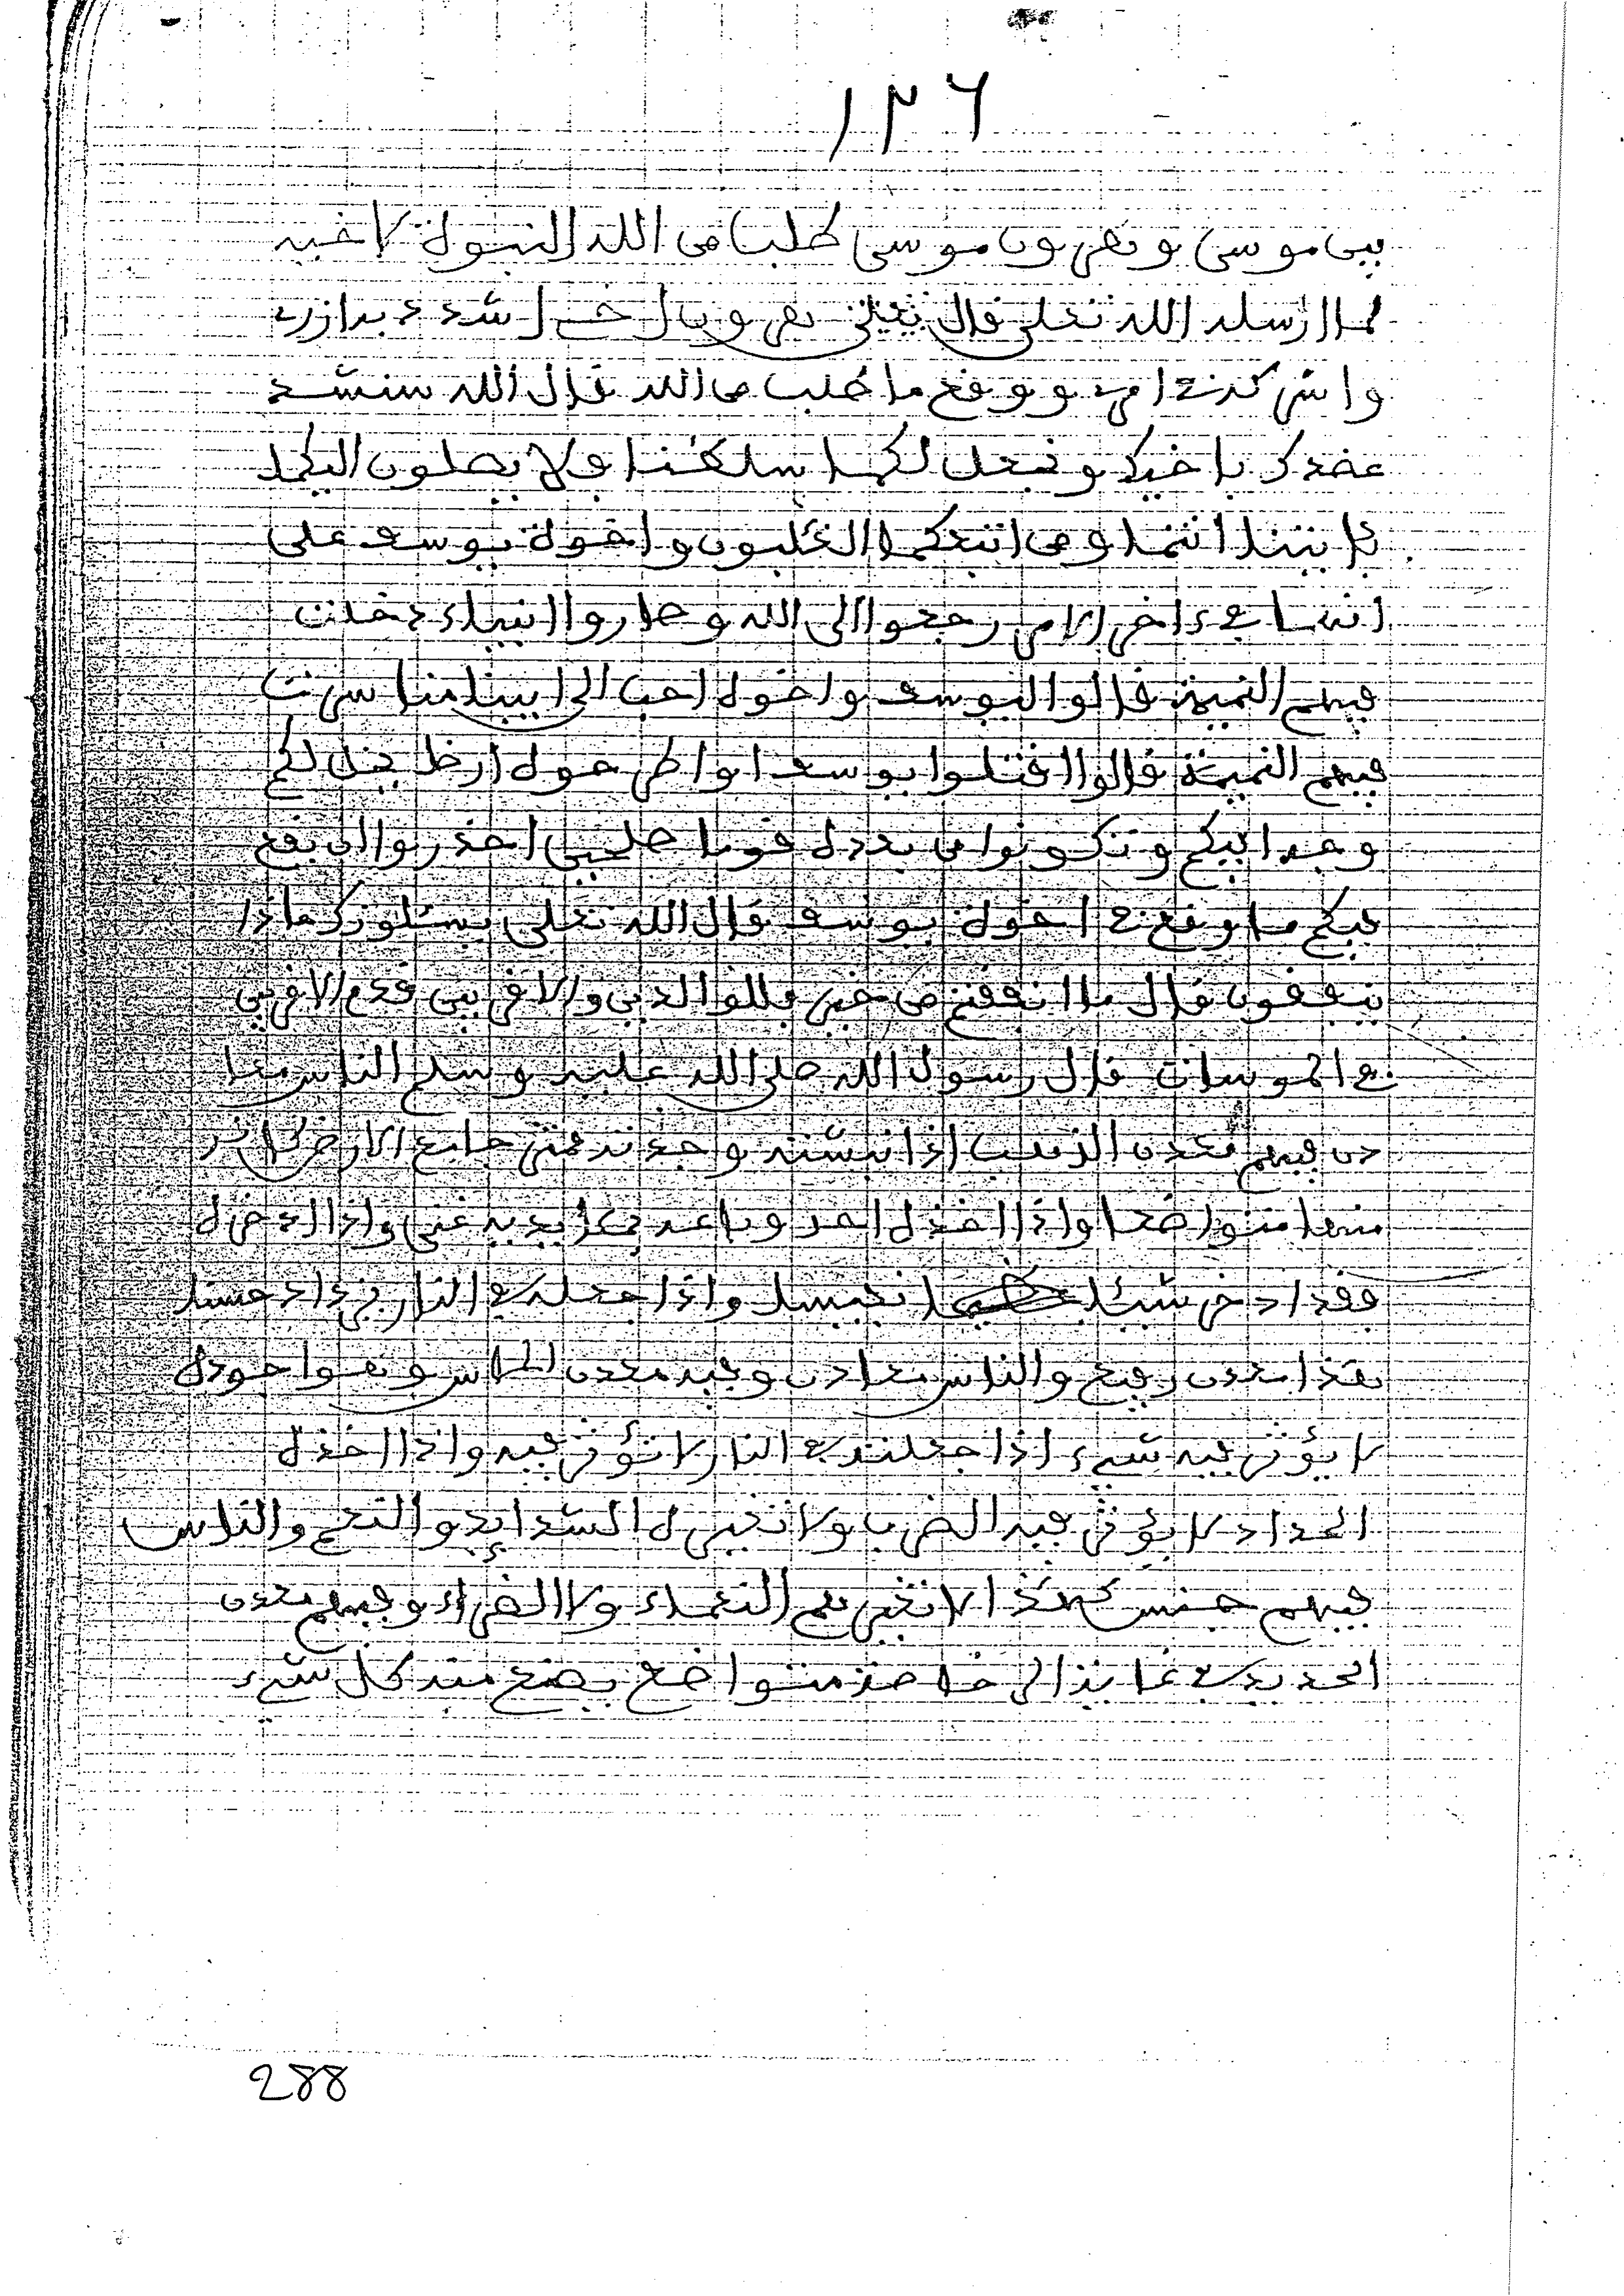 ١٣٦
بين موسى وهرون موسى طلب من الله النبوة لاخيه
لما ارسله الله تعلى قال يعنى هرون اخى اشدد به ازرى
واشركه في امرى ووقع ما طلب من الله قال الله سنشد
عضدك باخيك ونجعل لكما سلطنا فلا يصلون اليكما
بايتنا انتما ومن اتبعكما الغلبون واخوة يوسف على
انها في ءاخر الامر رجعوا الى الله وصاروا انبياء دخلت
فيهم النميمة قالوا اليوسف واخوه احب الى ابينا منا سرت
فيهم النميمة قالوا اقتلوا يوسف او اطرحوه ارضا يخل لكم
وجه ابيكم وتكونوا من بعده قوما صلحين احذروا ان يقع
فيكم ما وقع في اخوة يوسف قال الله تعلى يسئلونك ماذا
ينفقون قال ما انفقتم من خير فللوالدين والاقربين قدم الاقربين
في المواسات قال رسول الله صلى الله عليه وسلم الناس معا
دن فيهم معدن الذهب اذا نبشته وجدته
منها متواضعا واذا اخذه احد وباعه بما يريد به غنى واذا ادخره
فقد ادخر شيئا نفيسا واذا جعله في النار يزداد حسنا
هذا معدن رفيع والناس معادن وفيه معدن الماس وهوا حوده
لا يؤثر فيه شىء اذا جعلته في النار لا تؤثر فيه واذا اخذه
الحداد لا يؤثر فيه الضرب ولا تغيره الشدايد والنعم والناس
فيهم جنس كهذا لا تغيرهم النعماء ولا الضراء وفيهم معدن
الحديد في غاية الرخاصة متواضع يصنع منه كل شىء
288